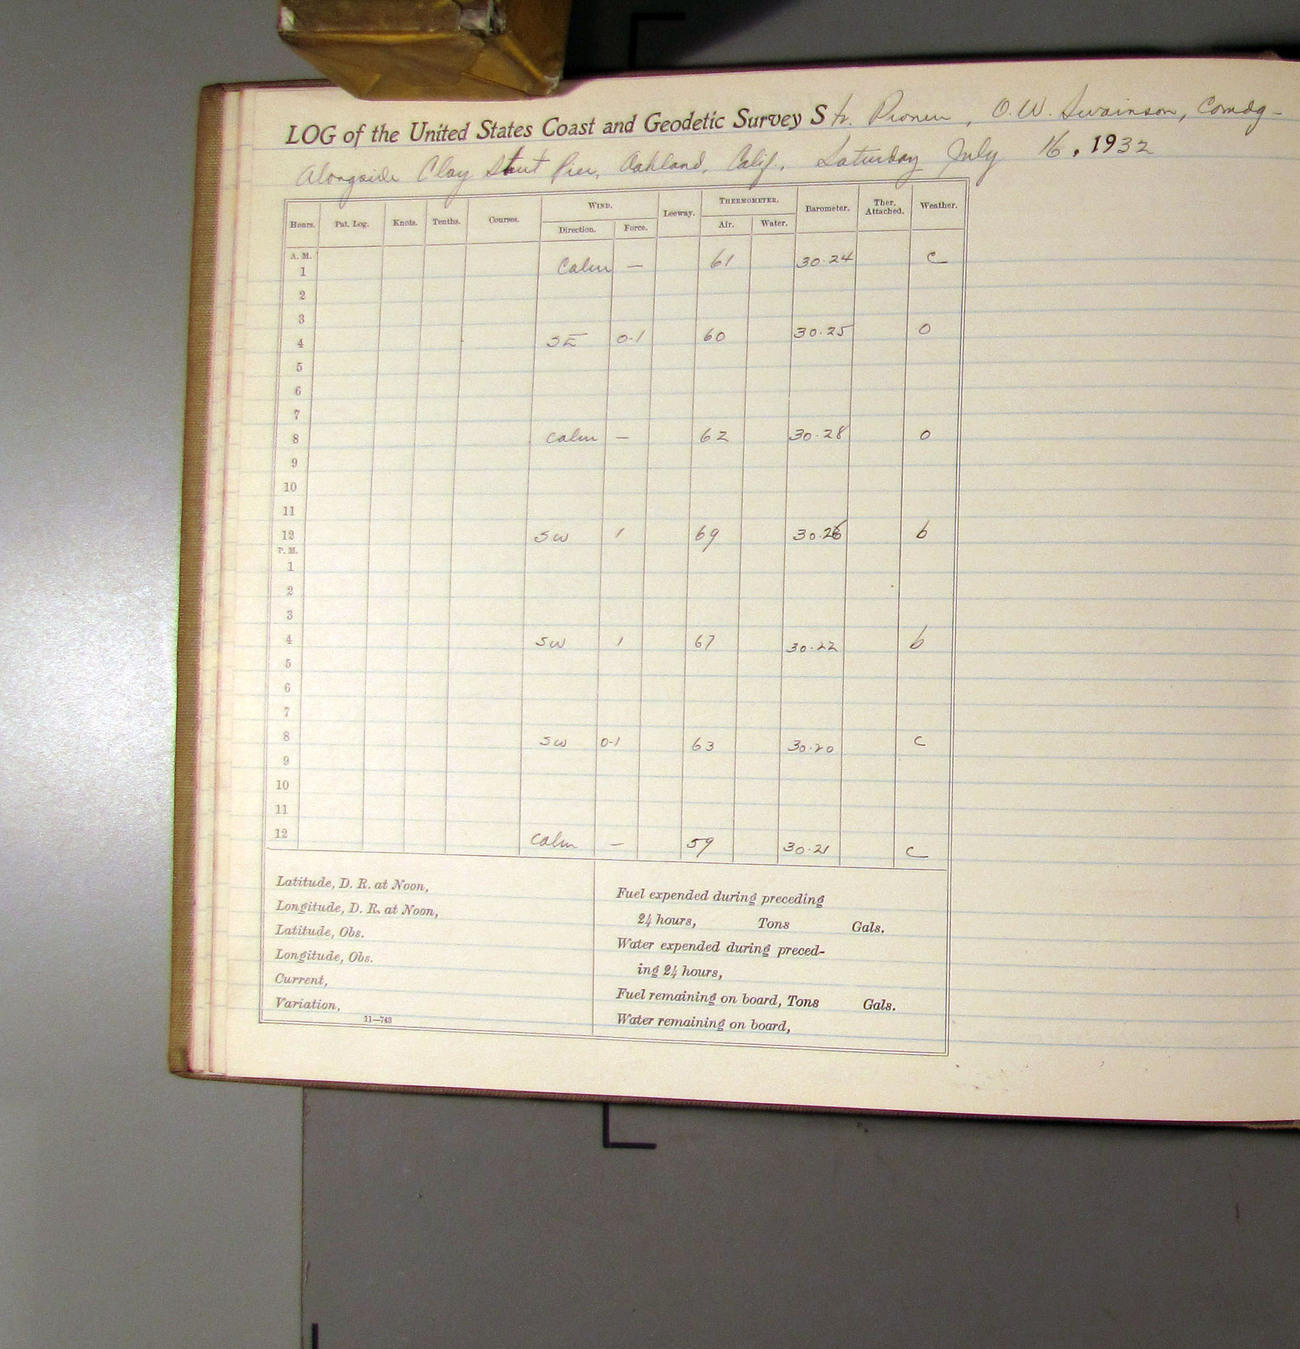 LOG of the United States Coast and Geodetic Survey Str. Pioneer, O. W. Swainson, Comdg-
Alongside Clay Street Pier, Oakland, Calif. Saturday July 16, 1932
Hours. Pat. Log. Knots. Tenths. Courses. WIND. Leeway. THERMOMETER. Barometer. Ther. Attached. Weather.
Direction. Force. Air. Water.
A. M.
1 Calm — 61 30.24 c
2
3
4 SE 0-1 60 30.25 o
5
6
7
8 Calm — 62 30.28 o
9
10
11
12 SW 1 69 30.26 b
P. M.
1
2
3
4 SW 1 67 30.22 b
5
6
7
8 SW 0-1 63 30.20 c
9
10
11
12 Calm — 59 30.21 c
Latitude, D. R. at Noon,
Longitude, D. R. at Noon,
Latitude, Obs.
Longitude, Obs.
Current,
Variation,
11—763
Fuel expended during preceding
24 hours, Tons Gals.
Water expended during preced-
ing 24 hours,
Fuel remaining on board, Tons Gals.
Water remaining on board,